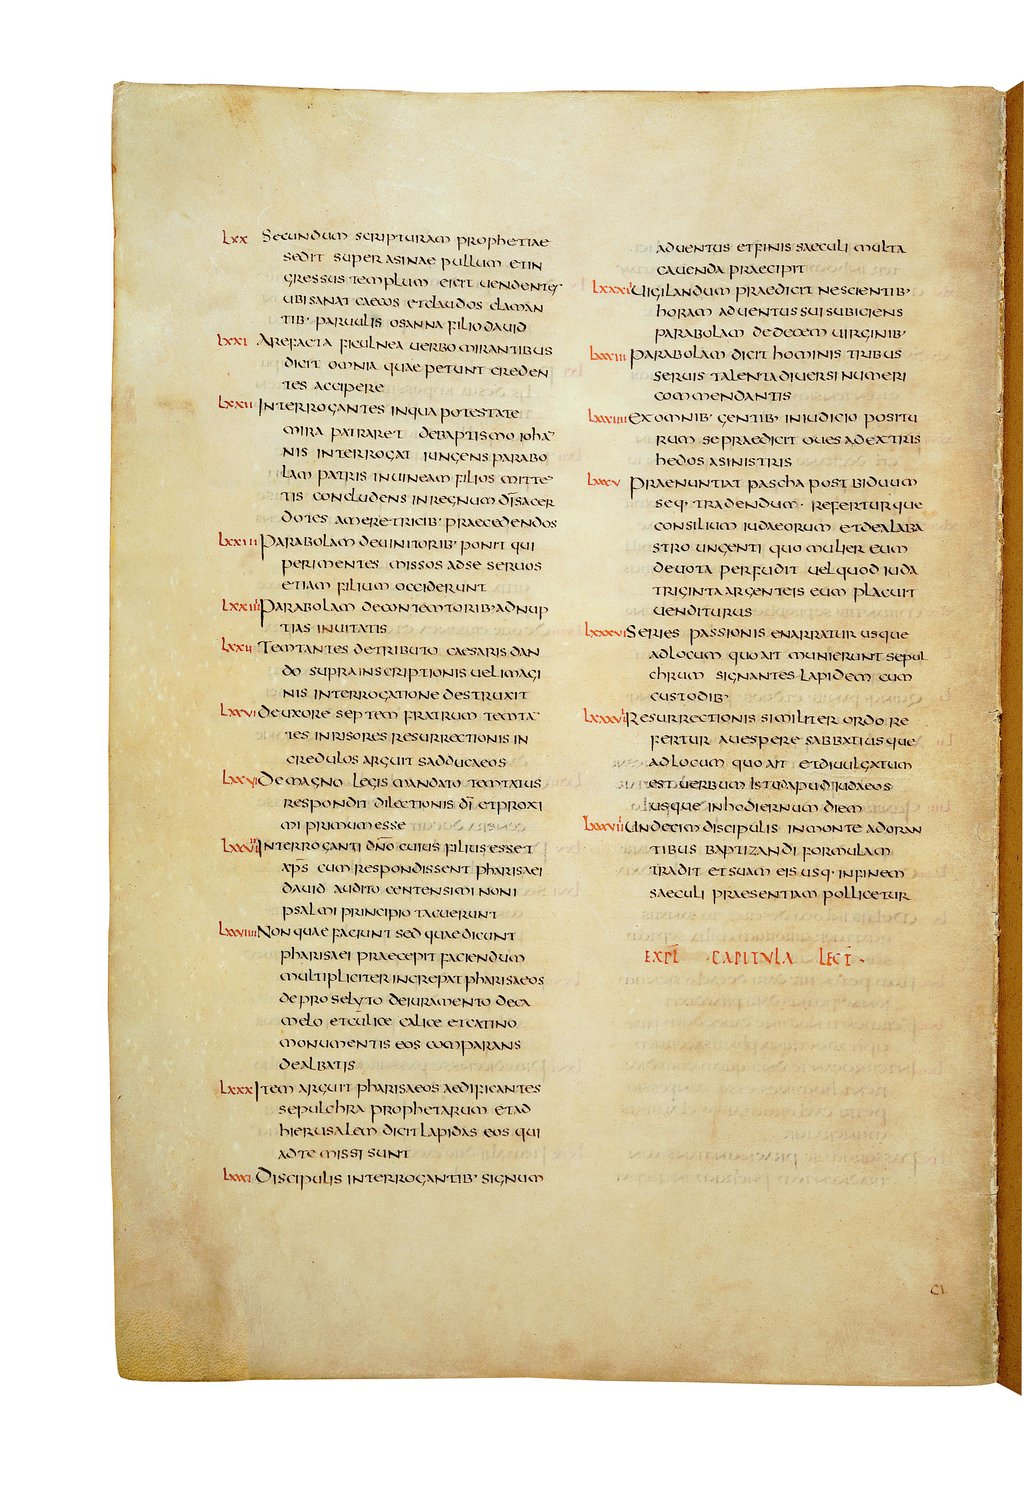 Lxx Secundum scripturam prophetiae
sedit super asinae pullum et in
gressus templum eicit uendentes
ubi sanat caecos et claudos claman
tib· paruulis osanna filio dauid
Lxxi Arefacta ficulnea uerbo mirantibus
dicit omnia quae petunt creden
tes accipere
Lxxii Interrogantes in qua potestate
mira patraret de baptismo ioha¯
nis interrogat iungens parabo
lam patris in uineam filios mitte¯
tis concludens in regnum dī sacer
dotes a meretricib· praecedendos
Lxxiii Parabolam de uinitorib· ponit qui
perimentes missos ad se seruos
etiam filium occiderunt
Lxxiiii Parabolam de contemtorib· ad nup
tias inuitatis
Lxxv Temtantes de tributo caesaris dan
do supra inscriptionis uel imagi
nis interrogatione destruxit
Lxxvi de uxore septem fratrum temta¯
tes inrisores resurrectionis in
credulos arguit sadducaeos
Lxxvii De magno legis mandato temtatus
respondit dilectionis dī et proxi
mi primum esse
Lxxviii Interroganti dn̄o cuius filius esset
xp̄s cum respondissent pharisaei
dauid audito centensimi noni
psalmi principio tacuerunt
Lxxviiii Non quae faciunt sed quae dicunt
pharisaei praecepit faciendum
multipliciter increpat pharisaeos
de proselyto de iuramento de ca
melo et culice calice et catino
monumentis eos comparans
dealbatis
Lxxx Item arguit pharisaeos aedificantes
sepulchra prophetarum et ad
hierusalem dicit lapidas eos qui
ad te missi sunt
Lxxxi Discipulis interrogantib· signum
aduentus et finis saeculi multa
cauenda praecipit
Lxxxii Uigilandum praedicit nescientib·
horam aduentus sui subiciens
parabolam de decem uirginib·
Lxxxiii Parabolam dicit hominis tribus
seruis talenta diuersi numeri
commendantis
Lxxxiiii Ex omnib· gentib· in iudicio positu
rum se praedicit oues a dextris
hedos a sinistris
Lxxxv Praenuntiat pascha post biduum
seq· tradendum· refertur que
consilium iudaeorum et de alaba
stro ungenti quo mulier eum
deuota perfudit uel quod iuda
triginta argenteis eum placuit
uenditurus
Lxxxvi Series passionis enarratur usque
ad locum quo ait munierunt sepul
chrum signantes lapidem cum
custodib·
Lxxxvii Resurrectionis similiter ordo re
fertur a uespere sabbati usque
ad locum quo ait et diuulgatum
est uerbum istud apud iudaeos
usque in hodiernum diem
Lxxxviii Undecim discipulis in monte adoran
tibus baptizandi formulam
tradit et suam eis usq· in finem
saeculi praesentiam pollicetur
EXPL̄ CAPITVLA LECT̄·